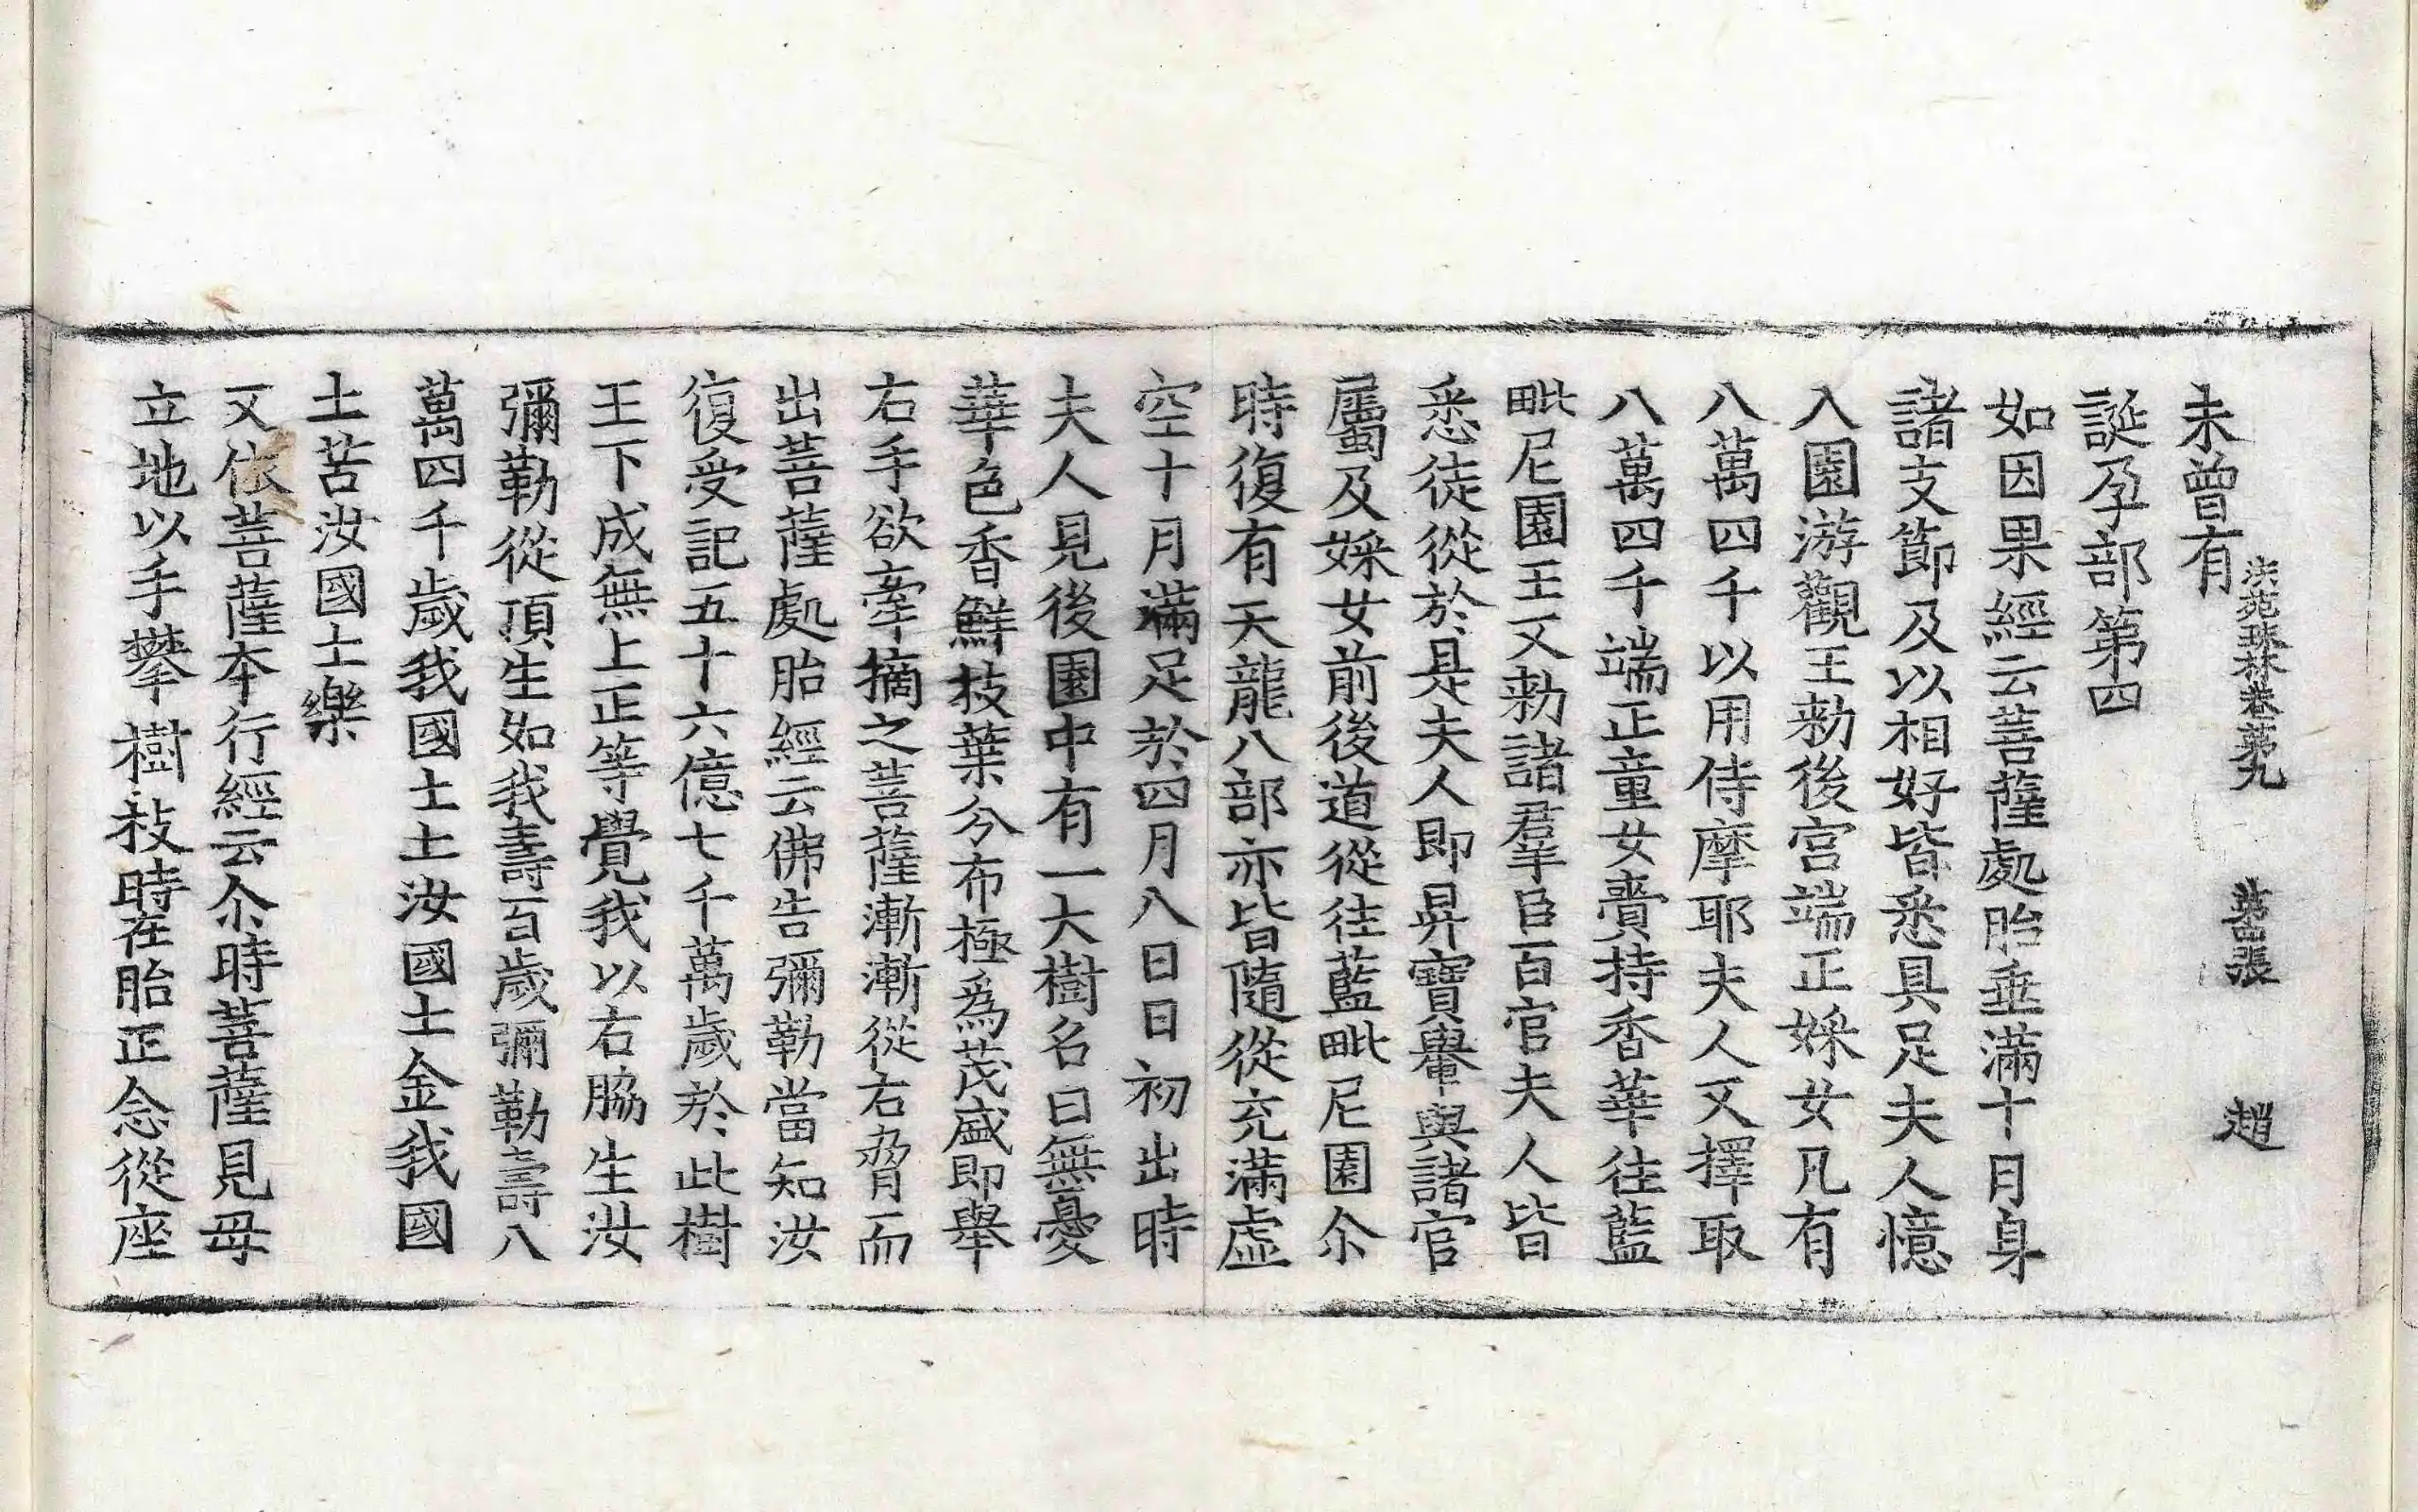 未曾有
法苑珠林卷第九 第四張 趙
誕孕部第四
如因果經云菩薩處胎垂滿十月身
諸支節及以相好皆悉具足夫人憶
入園游觀王勑後宫端正婇女凡有
八萬四千以用侍摩耶夫人又擇取
八萬四千端正童女賷持香華往藍
毗尼園王又勑諸羣臣百官夫人皆
悉徒從於是夫人即昇寶轝與諸官
屬及婇女前後道從往藍毗尼園尒
時復有天龍八部亦皆隨從充滿虛
空十月滿足於四月八日日初出時
夫人見後園中有一大樹名曰無憂
華色香鮮枝葉分布極爲茂盛即舉
右手欲牽摘之菩薩漸漸從右脅而
出菩薩處胎經云佛告彌勒當知汝
復受記五十六億七千萬歲於此樹
王下成無上正等覺我以右脇生汝
彌勒從頂生如我壽百歲彌勒壽八
萬四千歲我國土土汝國土金我國
土苦汝國土樂
又依菩薩本行經云尒時菩薩見母
立地以手攀樹枝時在胎正念從座